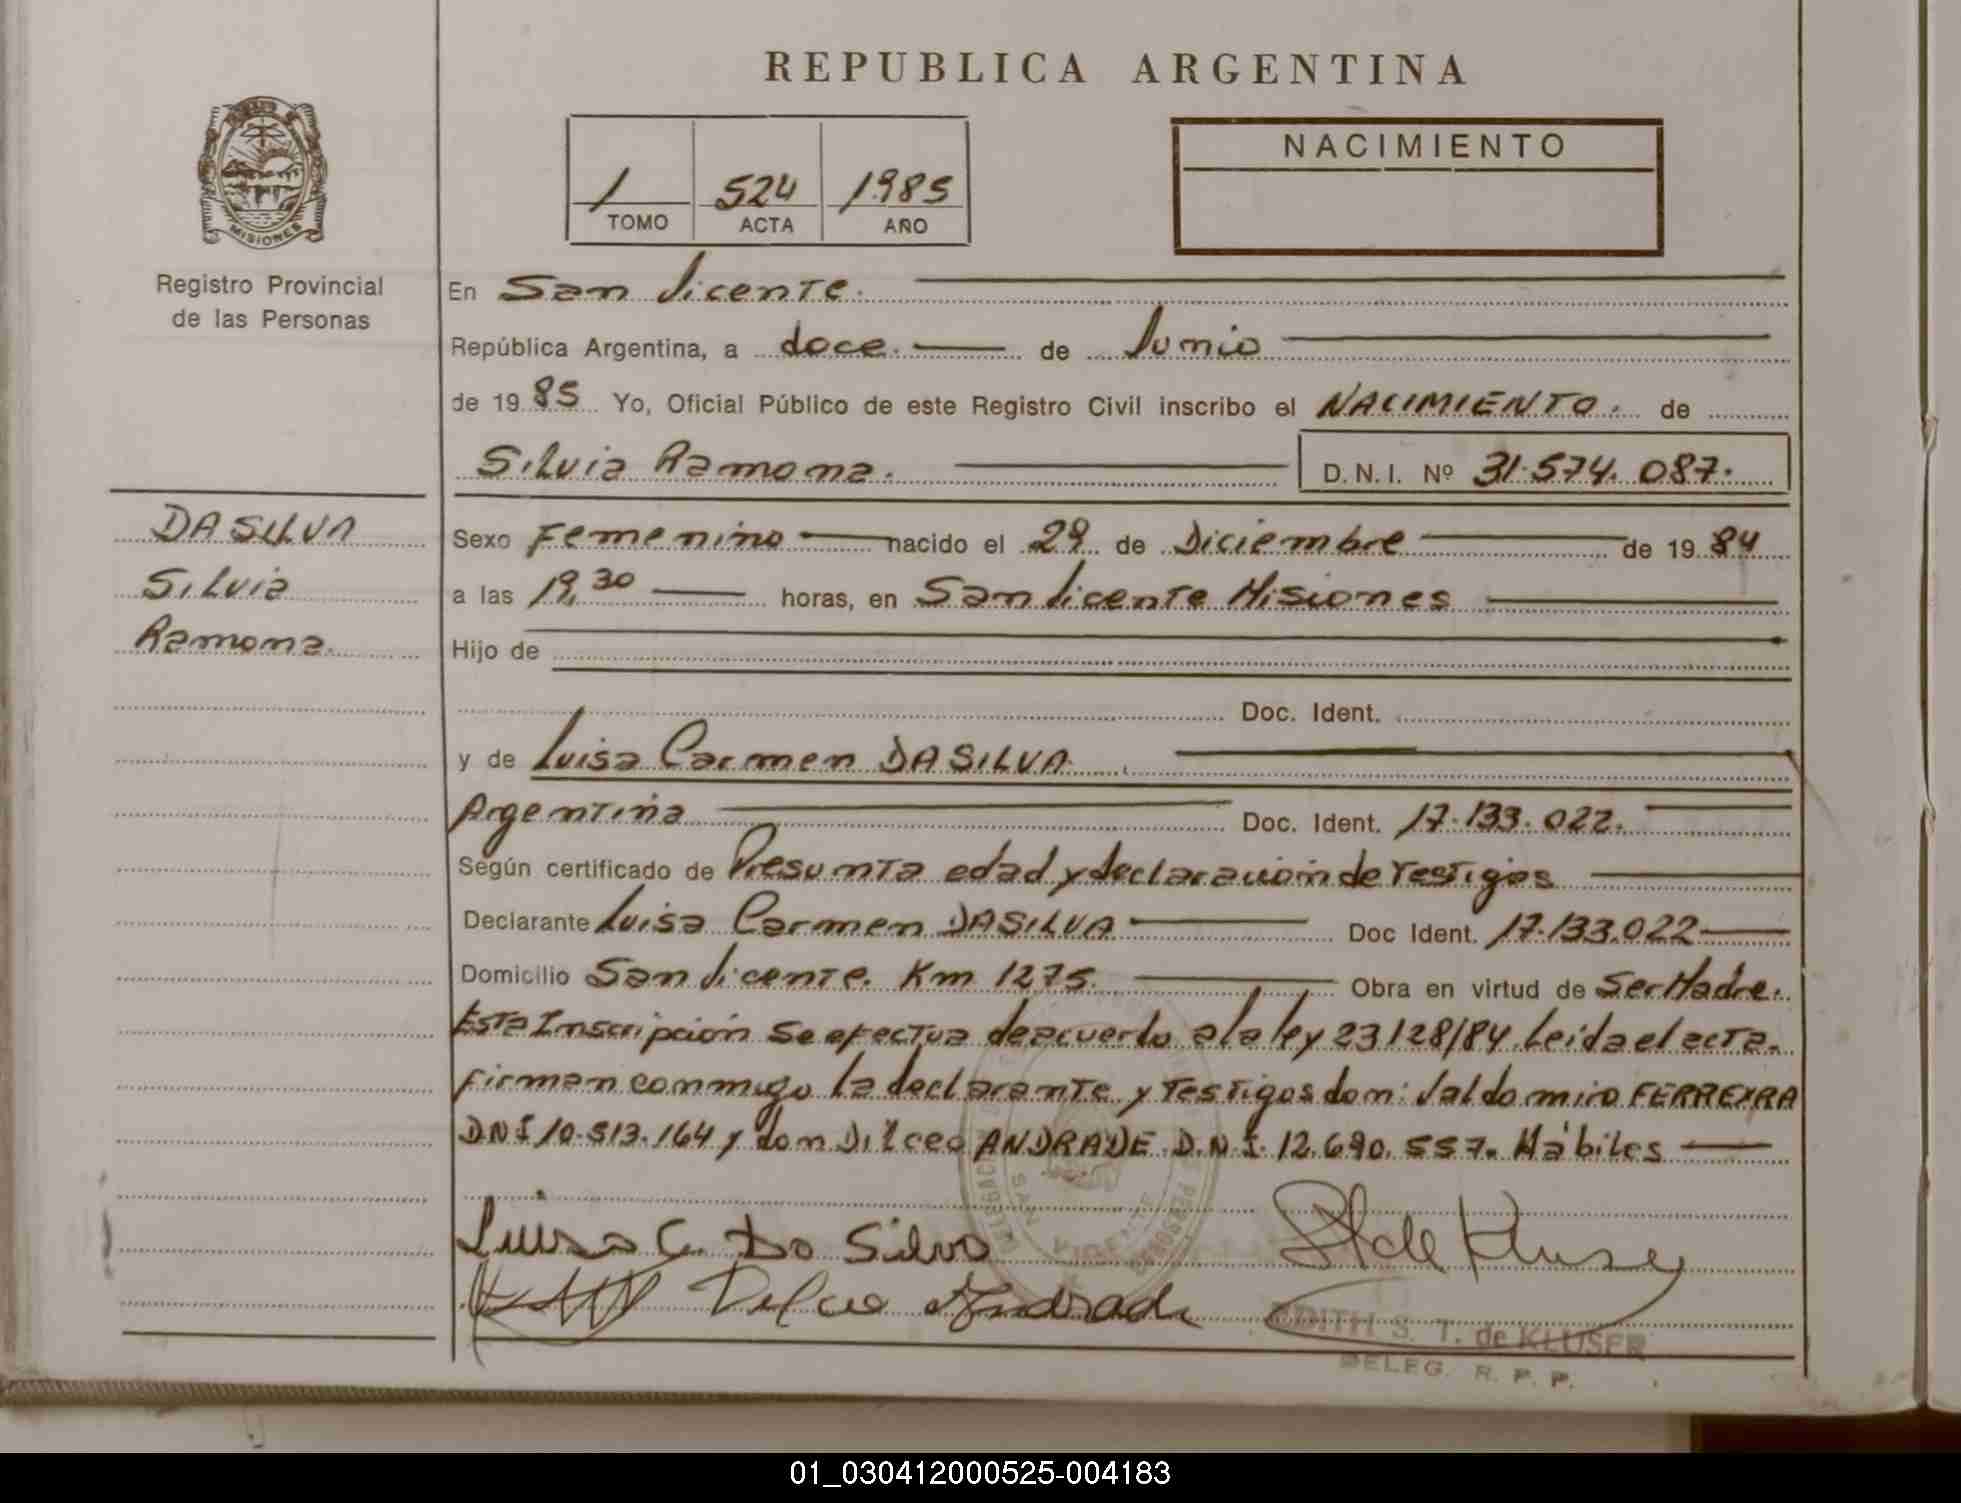 REPUBLICA ARGENTINA
MISIONES
Registro Provincial
de las Personas
1 524 1985
TOMO ACTA AÑO
NACIMIENTO
En San Vicente.
República Argentina, a doce. de Junio
de 19 85 Yo, Oficial Público de este Registro Civil inscribo el NACIMIENTO. de
Silvia Ramona. D.N.I. Nº 31.574.087.
DA SILVA
Silvia
Ramona.
Sexo Femenino nacido el 29 de Diciembre de 19 84
a las 19,30 horas, en San Vicente Misiones
Hijo de
Doc. Ident.
y de Luisa Carmen DA SILVA
Argentina Doc. Ident. 17.133.022.
Según certificado de Presunta edad y declaración de Testigos
Declarante Luisa Carmen DA SILVA Doc Ident. 17.133.022
Domicilio San Vicente. Km 1275. Obra en virtud de Ser Madre.
Esta Inscripción se efectua deacuerdo a la ley 23128/84. Leida el acta.
firman conmigo la declarante y Testigos don: Valdomiro FERREYRA
DNI 10.513.164 y don Dilceo ANDRADE D.N.I. 12.690.557. Hábiles
SAN VICENTE
Luisa C. Da Silva
Delceo Andrade
EDITH S. T. de KLUSER
DELEG. R. P. P.
01_030412000525-004183